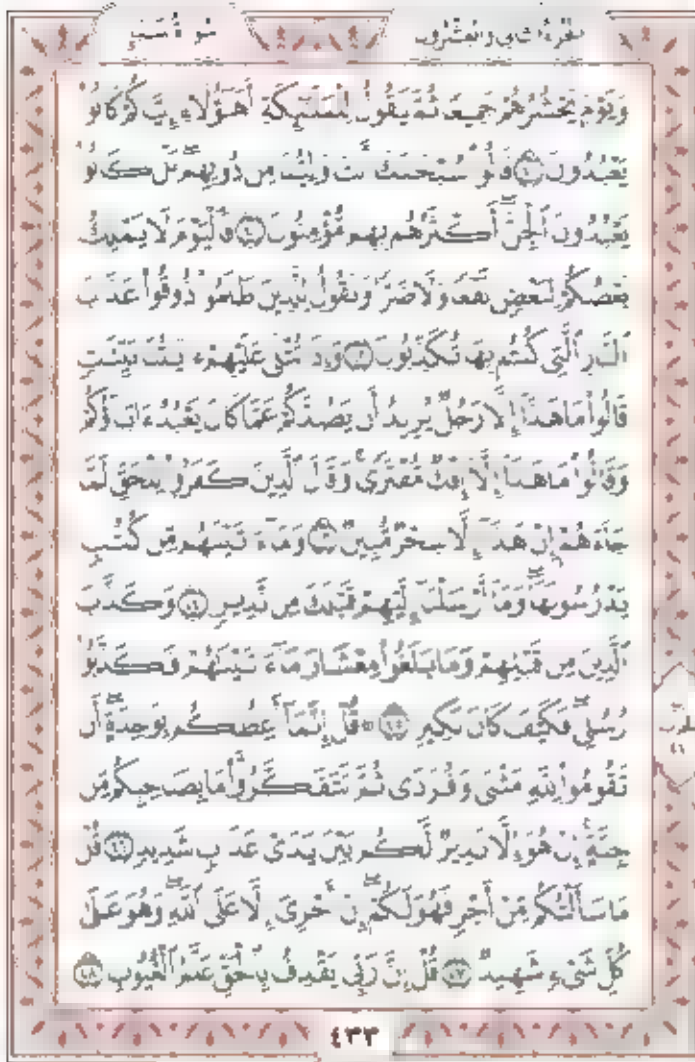 سورة سبإ
الجزء الثاني والعشرون
وَيَوْمَ يَحْشُرُهُمْ جَمِيعًا ثُمَّ يَقُولُ لِلْمَلَٰٓئِكَةِ أَهَٰٓؤُلَآءِ إِيَّاكُمْ كَانُوا۟
يَعْبُدُونَ ٤٠ قَالُوا۟ سُبْحَٰنَكَ أَنتَ وَلِيُّنَا مِن دُونِهِم بَلْ كَانُوا۟
يَعْبُدُونَ ٱلْجِنَّ أَكْثَرُهُم بِهِم مُّؤْمِنُونَ ٤١ فَٱلْيَوْمَ لَا يَمْلِكُ
بَعْضُكُمْ لِبَعْضٍ نَّفْعًا وَلَا ضَرًّا وَنَقُولُ لِلَّذِينَ ظَلَمُوا۟ ذُوقُوا۟ عَذَابَ
ٱلنَّارِ ٱلَّتِى كُنتُم بِهَا تُكَذِّبُونَ ٤٢ وَإِذَا تُتْلَىٰ عَلَيْهِمْ ءَايَٰتُنَا بَيِّنَٰتٍ
قَالُوا۟ مَا هَٰذَآ إِلَّا رَجُلٌ يُرِيدُ أَن يَصُدَّكُمْ عَمَّا كَانَ يَعْبُدُ ءَابَآؤُكُمْ
وَقَالُوا۟ مَا هَٰذَآ إِلَّآ إِفْكٌ مُّفْتَرًى وَقَالَ ٱلَّذِينَ كَفَرُوا۟ لِلْحَقِّ لَمَّا
جَآءَهُمْ إِنْ هَٰذَآ إِلَّا سِحْرٌ مُّبِينٌ ٤٣ وَمَآ ءَاتَيْنَٰهُم مِّن كُتُبٍ
يَدْرُسُونَهَا وَمَآ أَرْسَلْنَآ إِلَيْهِمْ قَبْلَكَ مِن نَّذِيرٍ ٤٤ وَكَذَّبَ
ٱلَّذِينَ مِن قَبْلِهِمْ وَمَا بَلَغُوا۟ مِعْشَارَ مَآ ءَاتَيْنَٰهُمْ فَكَذَّبُوا۟
رُسُلِى فَكَيْفَ كَانَ نَكِيرِ ٤٥ ۞ قُلْ إِنَّمَآ أَعِظُكُم بِوَٰحِدَةٍ أَن
تَقُومُوا۟ لِلَّهِ مَثْنَىٰ وَفُرَٰدَىٰ ثُمَّ تَتَفَكَّرُوا۟ مَا بِصَاحِبِكُم مِّن
جِنَّةٍ إِنْ هُوَ إِلَّا نَذِيرٌ لَّكُم بَيْنَ يَدَىْ عَذَابٍ شَدِيدٍ ٤٦ قُلْ
مَا سَأَلْتُكُم مِّنْ أَجْرٍ فَهُوَ لَكُمْ إِنْ أَجْرِىَ إِلَّا عَلَى ٱللَّهِ وَهُوَ عَلَىٰ
كُلِّ شَىْءٍ شَهِيدٌ ٤٧ قُلْ إِنَّ رَبِّى يَقْذِفُ بِٱلْحَقِّ عَلَّٰمُ ٱلْغُيُوبِ ٤٨
الحزب
٤٣٣